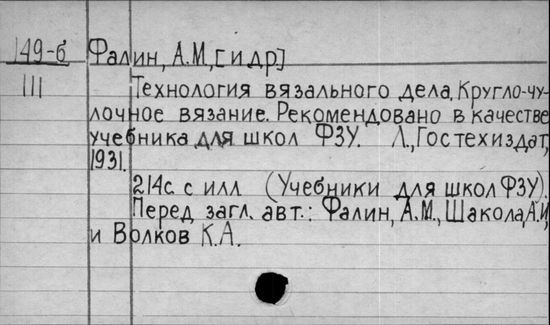 149-б Фалин, А.М, [и др]
III Технология вязального дела, Кругло-чу-
лочное вязание. Рекомендовано в качестве
учебника для школ ФЗУ. Л., Гостехиздат,
1931.
214с. с илл (Учебники для школ ФЗУ).
Перед загл. авт.: Фалин, А.М., Шакола, А.И,
и Волков К.А.